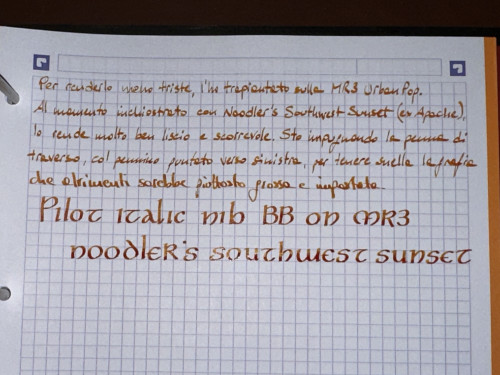 Per renderlo meno triste, l'ho trapiantato sulla MR3 Urban Pop.
Al momento inchiostrato con Noodler's Southwest Sunset (ex Apache),
lo rende molto ben liscio e scorrevole. Sto impugnando la penna di
traverso, col pennino puntato verso sinistra, per tenere snella la grafia
che altrimenti sarebbe piuttosto grossa e impastata.
Pilot italic nib BB on MR3
noodler's southwest sunset